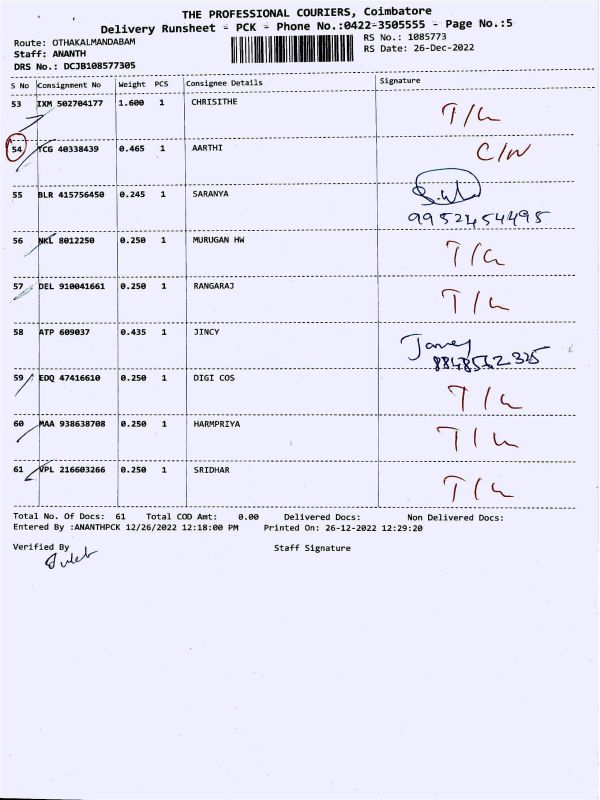 THE PROFESSIONAL COURIERS, Coimbatore
Delivery Runsheet - PCK - Phone No.:0422-3505555 - Page No.:5
Route: OTHAKALMANDABAM RS No.: 1085773
Staff: ANANTH RS Date: 26-Dec-2022
DRS No.: DCJB108577305
S No Consignment No Weight PCS Consignee Details Signature
53 IXM 502704177 1.600 1 CHRISITHE T/L
54 TCG 40338439 0.465 1 AARTHI C/N
55 BLR 415756450 0.245 1 SARANYA
9952454495
56 NKL 8012250 0.250 1 MURUGAN HW T/L
57 DEL 910041661 0.250 1 RANGARAJ T/L
58 ATP 609037 0.435 1 JINCY
59 EDQ 47416610 0.250 1 DIGI COS T/L
60 MAA 938638708 0.250 1 HARMPRIYA T/L
61 VPL 216603266 0.250 1 SRIDHAR T/L
Total No. Of Docs: 61 Total COD Amt: 0.00 Delivered Docs: Non Delivered Docs:
Entered By :ANANTHPCK 12/26/2022 12:18:00 PM Printed On: 26-12-2022 12:29:20
Verified By Staff Signature